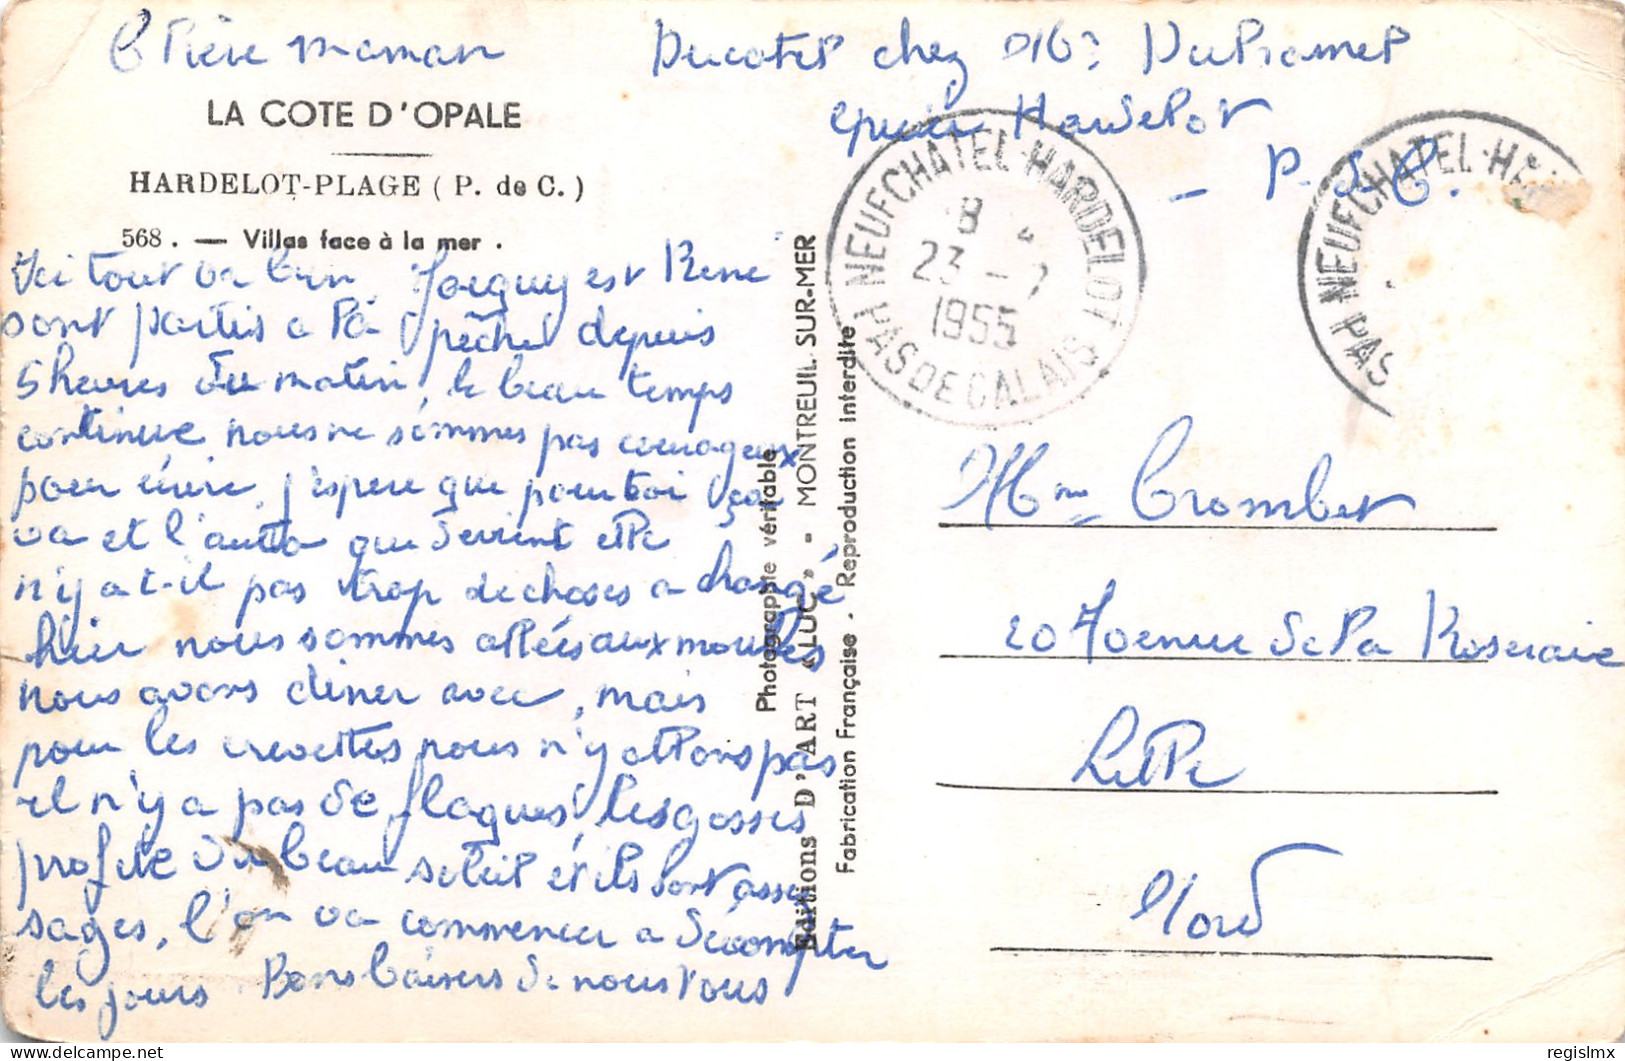 Chère maman
Ducatel chez Mr Duhamel
épicier Hardelot
- P. de C.
LA COTE D'OPALE
HARDELOT-PLAGE ( P. de C. )
568. — Villas face à la mer .
Ici tout va bien est René
sont partis a la pêche depuis
5 heures du matin, le beau temps
continue nous ne sommes pas courageux
pour écrire, j'espère que pour toi ça
va et l'auto que devient elle
n'y a-t-il pas trop de choses a changé
hier nous sommes allées aux moules
nous avons diner avec, mais
pour les crevettes nous n'y allons pas
il n'y a pas de flaques les gosses
profite du beau soleil et ils sont assez
sages, l'on va commencer a décompter
les jours Bons baisers de nous tous
Photographie véritable
Editions D'ART "LUC" - MONTREUIL SUR-MER
Fabrication Française . Reproduction interdite
NEUFCHATEL-HARDELOT
8
23 - 7
1955
PAS DE CALAIS
NEUFCHATEL-HA
PAS
Mme Crombet
20 Avenue de la Roseraie
Lille
Nord
©regislmx
regislmx